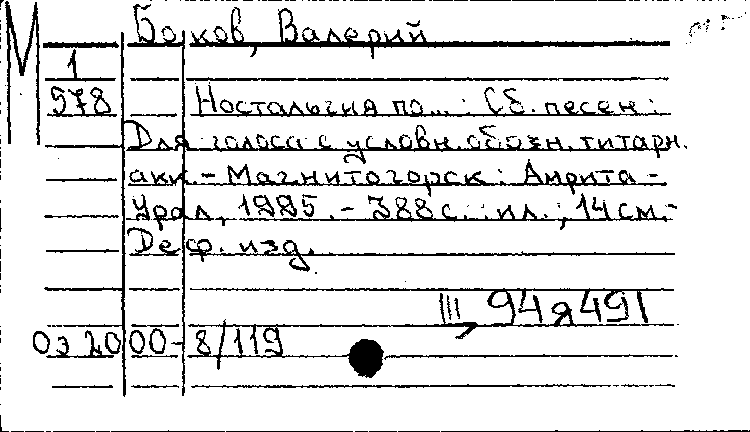 М
Боков, Валерий
1
578
Ностальгия по... : Сб. песен :
Для голоса с условн. обозн. гитарн.
акк. - Магнитогорск : Амрита -
Урал, 1995. - 388 с. : ил. ; 14 см. -
Деф. изд.
III, 94я491
Оэ 2000-8/119